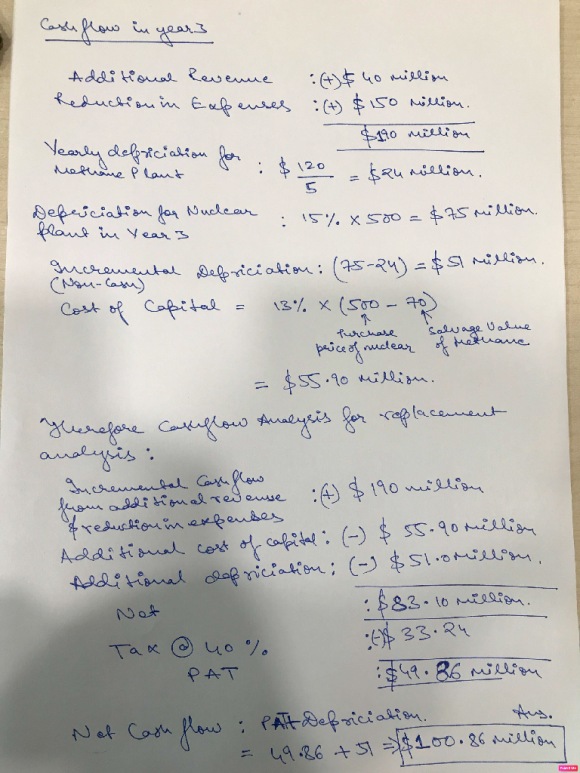 Cash flow in year 3
Additional Revenue : (+) $ 40 million
Reduction in Expenses : (+) $ 150 million.
$190 million
Yearly depriciation for
Methane Plant : $ 120/5 = $24 million.
Depriciation for Nuclear : 15% × 500 = $75 million.
plant in Year 3
Incremental Depriciation : (75-24) = $51 million.
(Non-Cash)
Cost of Capital = 13% × (500 - 70)
↑ ↑
Purchase Salvage Value
price of nuclear of Methane
= $55.90 million.
Therefore Cashflow Analysis for replacement
analysis :
Incremental Cashflow
from additional revenue : (+) $ 190 million
& reduction in expenses
Additional cost of capital : (-) $ 55.90 million
Additional depriciation : (-) $ 51.0 million.
Net : $83.10 million.
Tax @ 40 % : (-) $ 33.24
PAT : $49.86 million
Ans.
Net Cash flow : PAT + Depriciation.
= 49.86 + 51 => $100.86 million